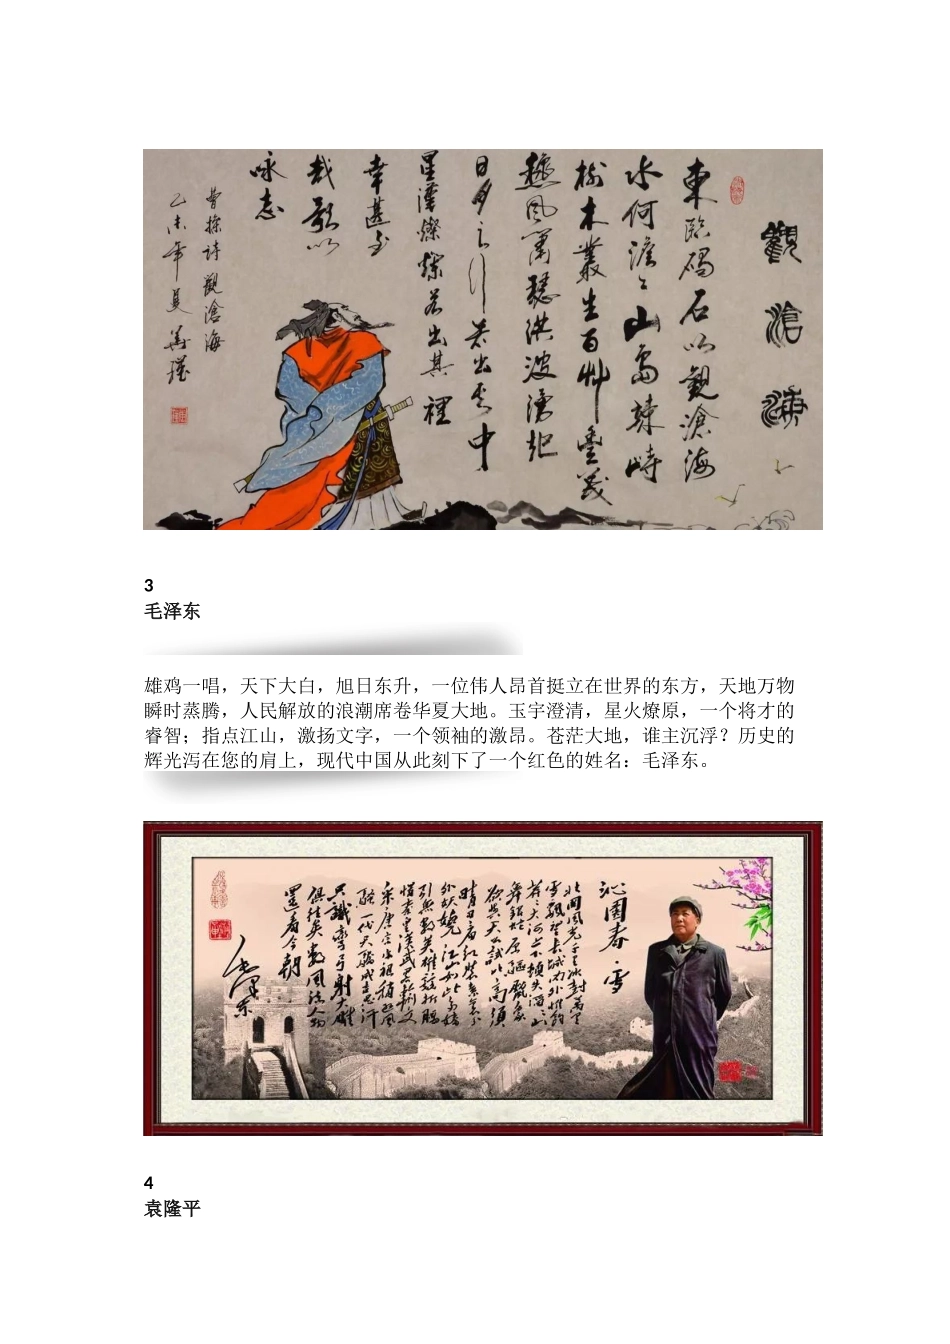 觀滄海
東臨碣石以觀滄海
水何澹澹山島竦峙
樹木叢生百艸豐茂
秋風蕭瑟洪波湧起
日月之行若出其中
星漢燦爛若出其裡
幸甚至
哉歌以
咏志
曹操詩觀滄海
乙未年夏
3
毛泽东
雄鸡一唱，天下大白，旭日东升，一位伟人昂首挺立在世界的东方，天地万物
瞬时蒸腾，人民解放的浪潮席卷华夏大地。玉宇澄清，星火燎原，一个将才的
睿智；指点江山，激扬文字，一个领袖的激昂。苍茫大地，谁主沉浮？历史的
辉光泻在您的肩上，现代中国从此刻下了一个红色的姓名：毛泽东。
沁園春·雪
北國風光千里冰封萬里
雪飄望長城內外惟餘
莽莽大河上下頓失滔滔山
舞銀蛇原驅臘象
欲與天公試比高須
晴日看紅裝素裹分
外妖嬈江山如此多嬌
引無數英雄競折腰
惜秦皇漢武略輸文
采唐宗宋祖稍遜風
騷一代天驕成吉思汗
只識彎弓射大雕
俱往矣數風流人物
還看今朝
毛澤東
4
袁隆平